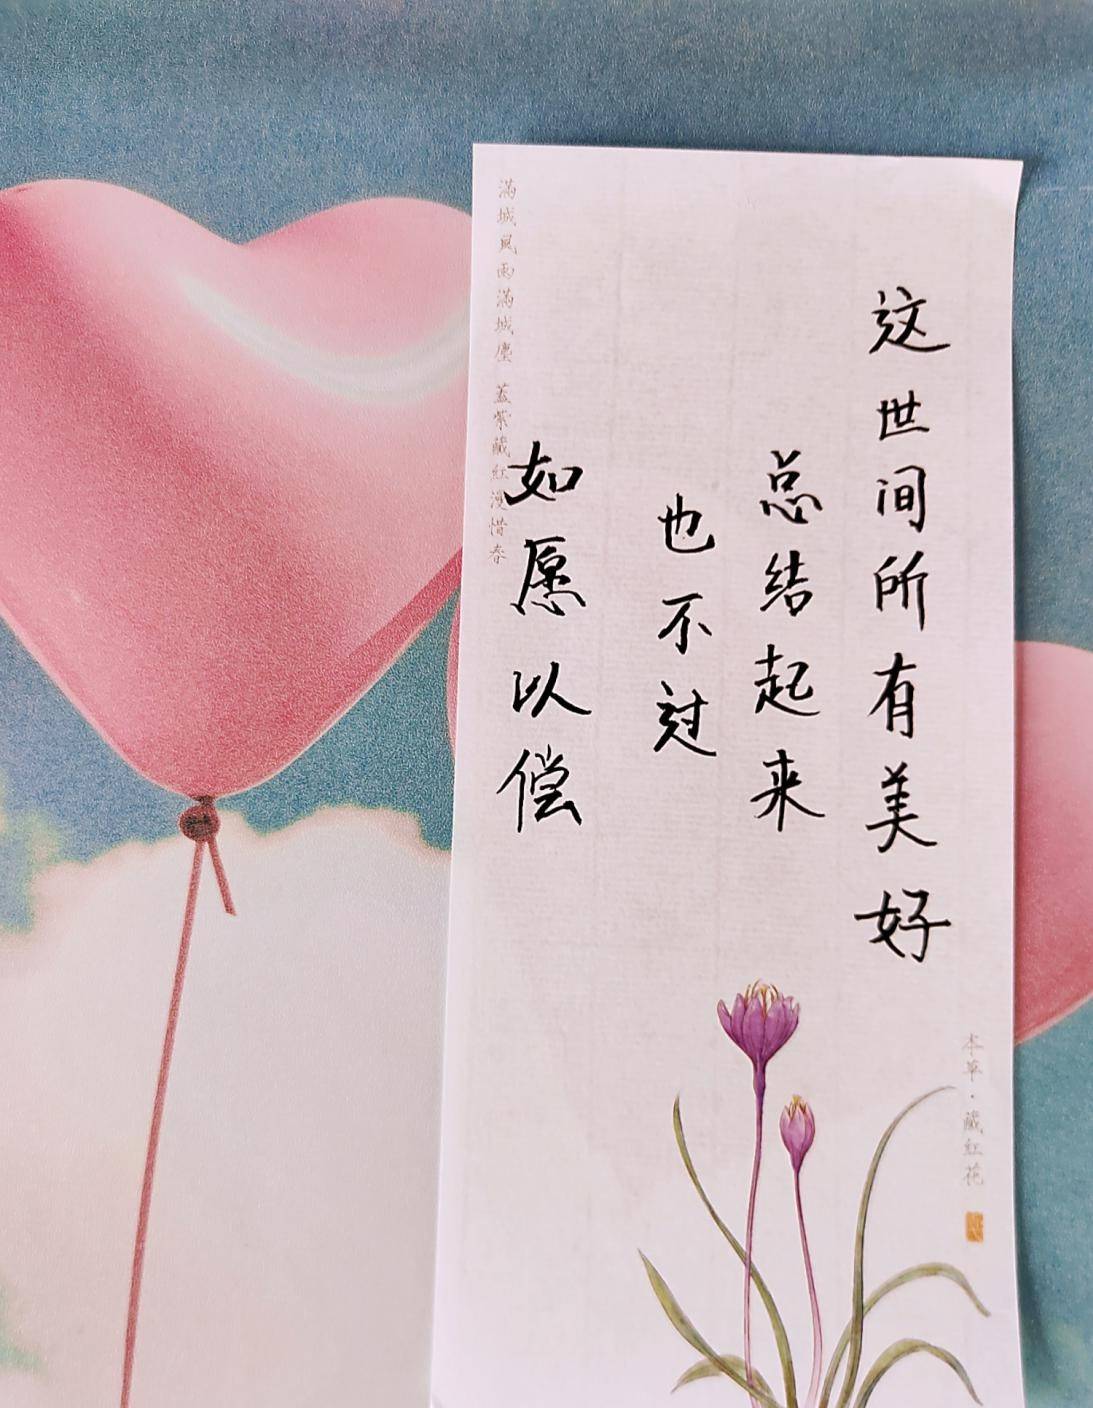 这世间所有美好
总结起来
也不过
如愿以偿
滿城風雨滿城塵 蓋紫藏紅漫惜春
本草·藏红花